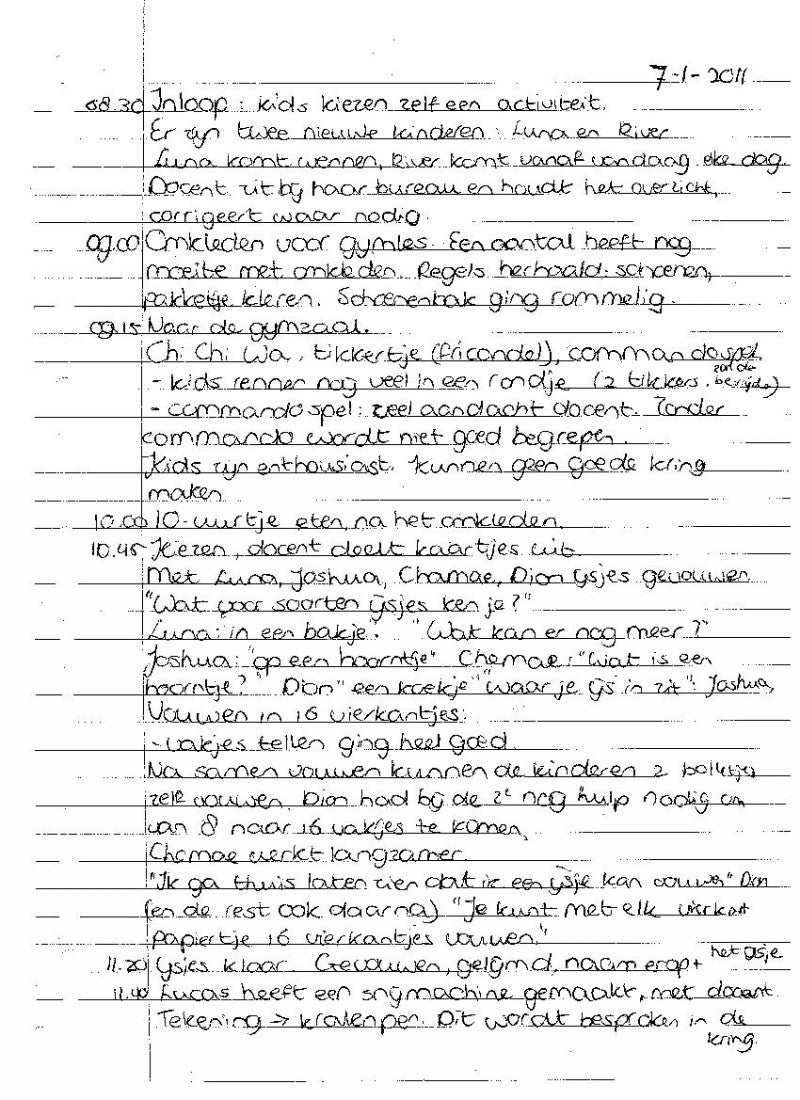 7-1-2011
08.30 Inloop: kids kiezen zelf een activiteit.
Er zijn twee nieuwe kinderen: Luna en River
Luna komt wennen, River komt vanaf vandaag elke dag.
Docent zit bij haar bureau en houdt het overzicht,
corrigeert waar nodig.
09.00 Omkleden voor gymles. Een aantal heeft nog
moeite met omkleden. Regels herhaald: schoenen,
pakketje kleren. Schoenenbak ging rommelig.
09.15 Naar de gymzaal.
Chi Chi Wa, tikkertje (fricandel), commandospel.
- kids rennen nog veel in een rondje (2 tikkers.
- commando spel: veel aandacht docent. Zonder
commando wordt niet goed begrepen.
Kids zijn enthousiast. Kunnen geen goede kring
maken
10.00 10-uurtje eten, na het omkleden.
10.45 Kiezen, docent deelt kaartjes uit.
Met Luna, Joshua, Chamae, Dion ijsjes gevouwen
"Wat voor soorten ijsjes ken je?"
Luna: in een bakje". "Wat kan er nog meer?"
Joshua: "op een hoorntje" Chemae: "Wat is een
hoorntje?" Dion "een koekje" "waar je ijs in zit": Joshua,
Vouwen in 16 vierkantjes:
- vakjes tellen ging heel goed
Na samen vouwen kunnen de kinderen 2 bolletjes
zelf vouwen. Dion had bij de 2e nog hulp nodig om
van 8 naar 16 vakjes te komen.
Chemae werkt langzamer.
"Ik ga thuis laten zien dat ik een ijsje kan vouwen" Dion
(en de rest ook daarna) "Je kunt met elk vierkant
papiertje 16 vierkantjes vouwen."
11.20 IJsjes klaar. Gevouwen, gelijmd, naam erop + het ijsje
11.40 Lucas heeft een snijmachine gemaakt, met docent.
Tekening → kralenpen. Dit wordt besproken in de
kring.